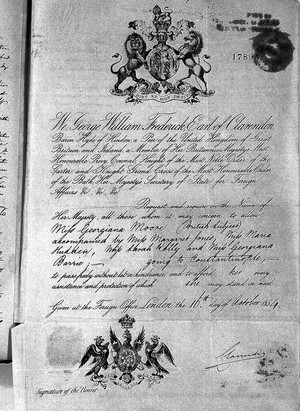 1789
We, George William Frederick, Earl of Clarendon,
Baron Hyde of Hindon, a Peer of the United Kingdom of Great
Britain and Ireland, a Member of Her Britannic Majesty's Most
Honorable Privy Council, Knight of the Most Noble Order of the
Garter and Knight Grand Cross of the Most Honorable Order
of the Bath, Her Majesty's Secretary of State for Foreign
Affairs &c. &c. &c.
Request and require in the Name of
Her Majesty, all those whom it may concern to allow
Miss Georgiana Moore (British subject)
accompanied by Miss Margaret Jones, Miss Maria
Miss Sarah Kelly and Miss Georgiana
Barrie, going to Constantinople,
to pass freely without let or hindrance and to afford her every
assistance and protection of which she may stand in need.
Given at the Foreign Office, London, the 16th day of October 1854.
Clarendon
Signature of the Bearer